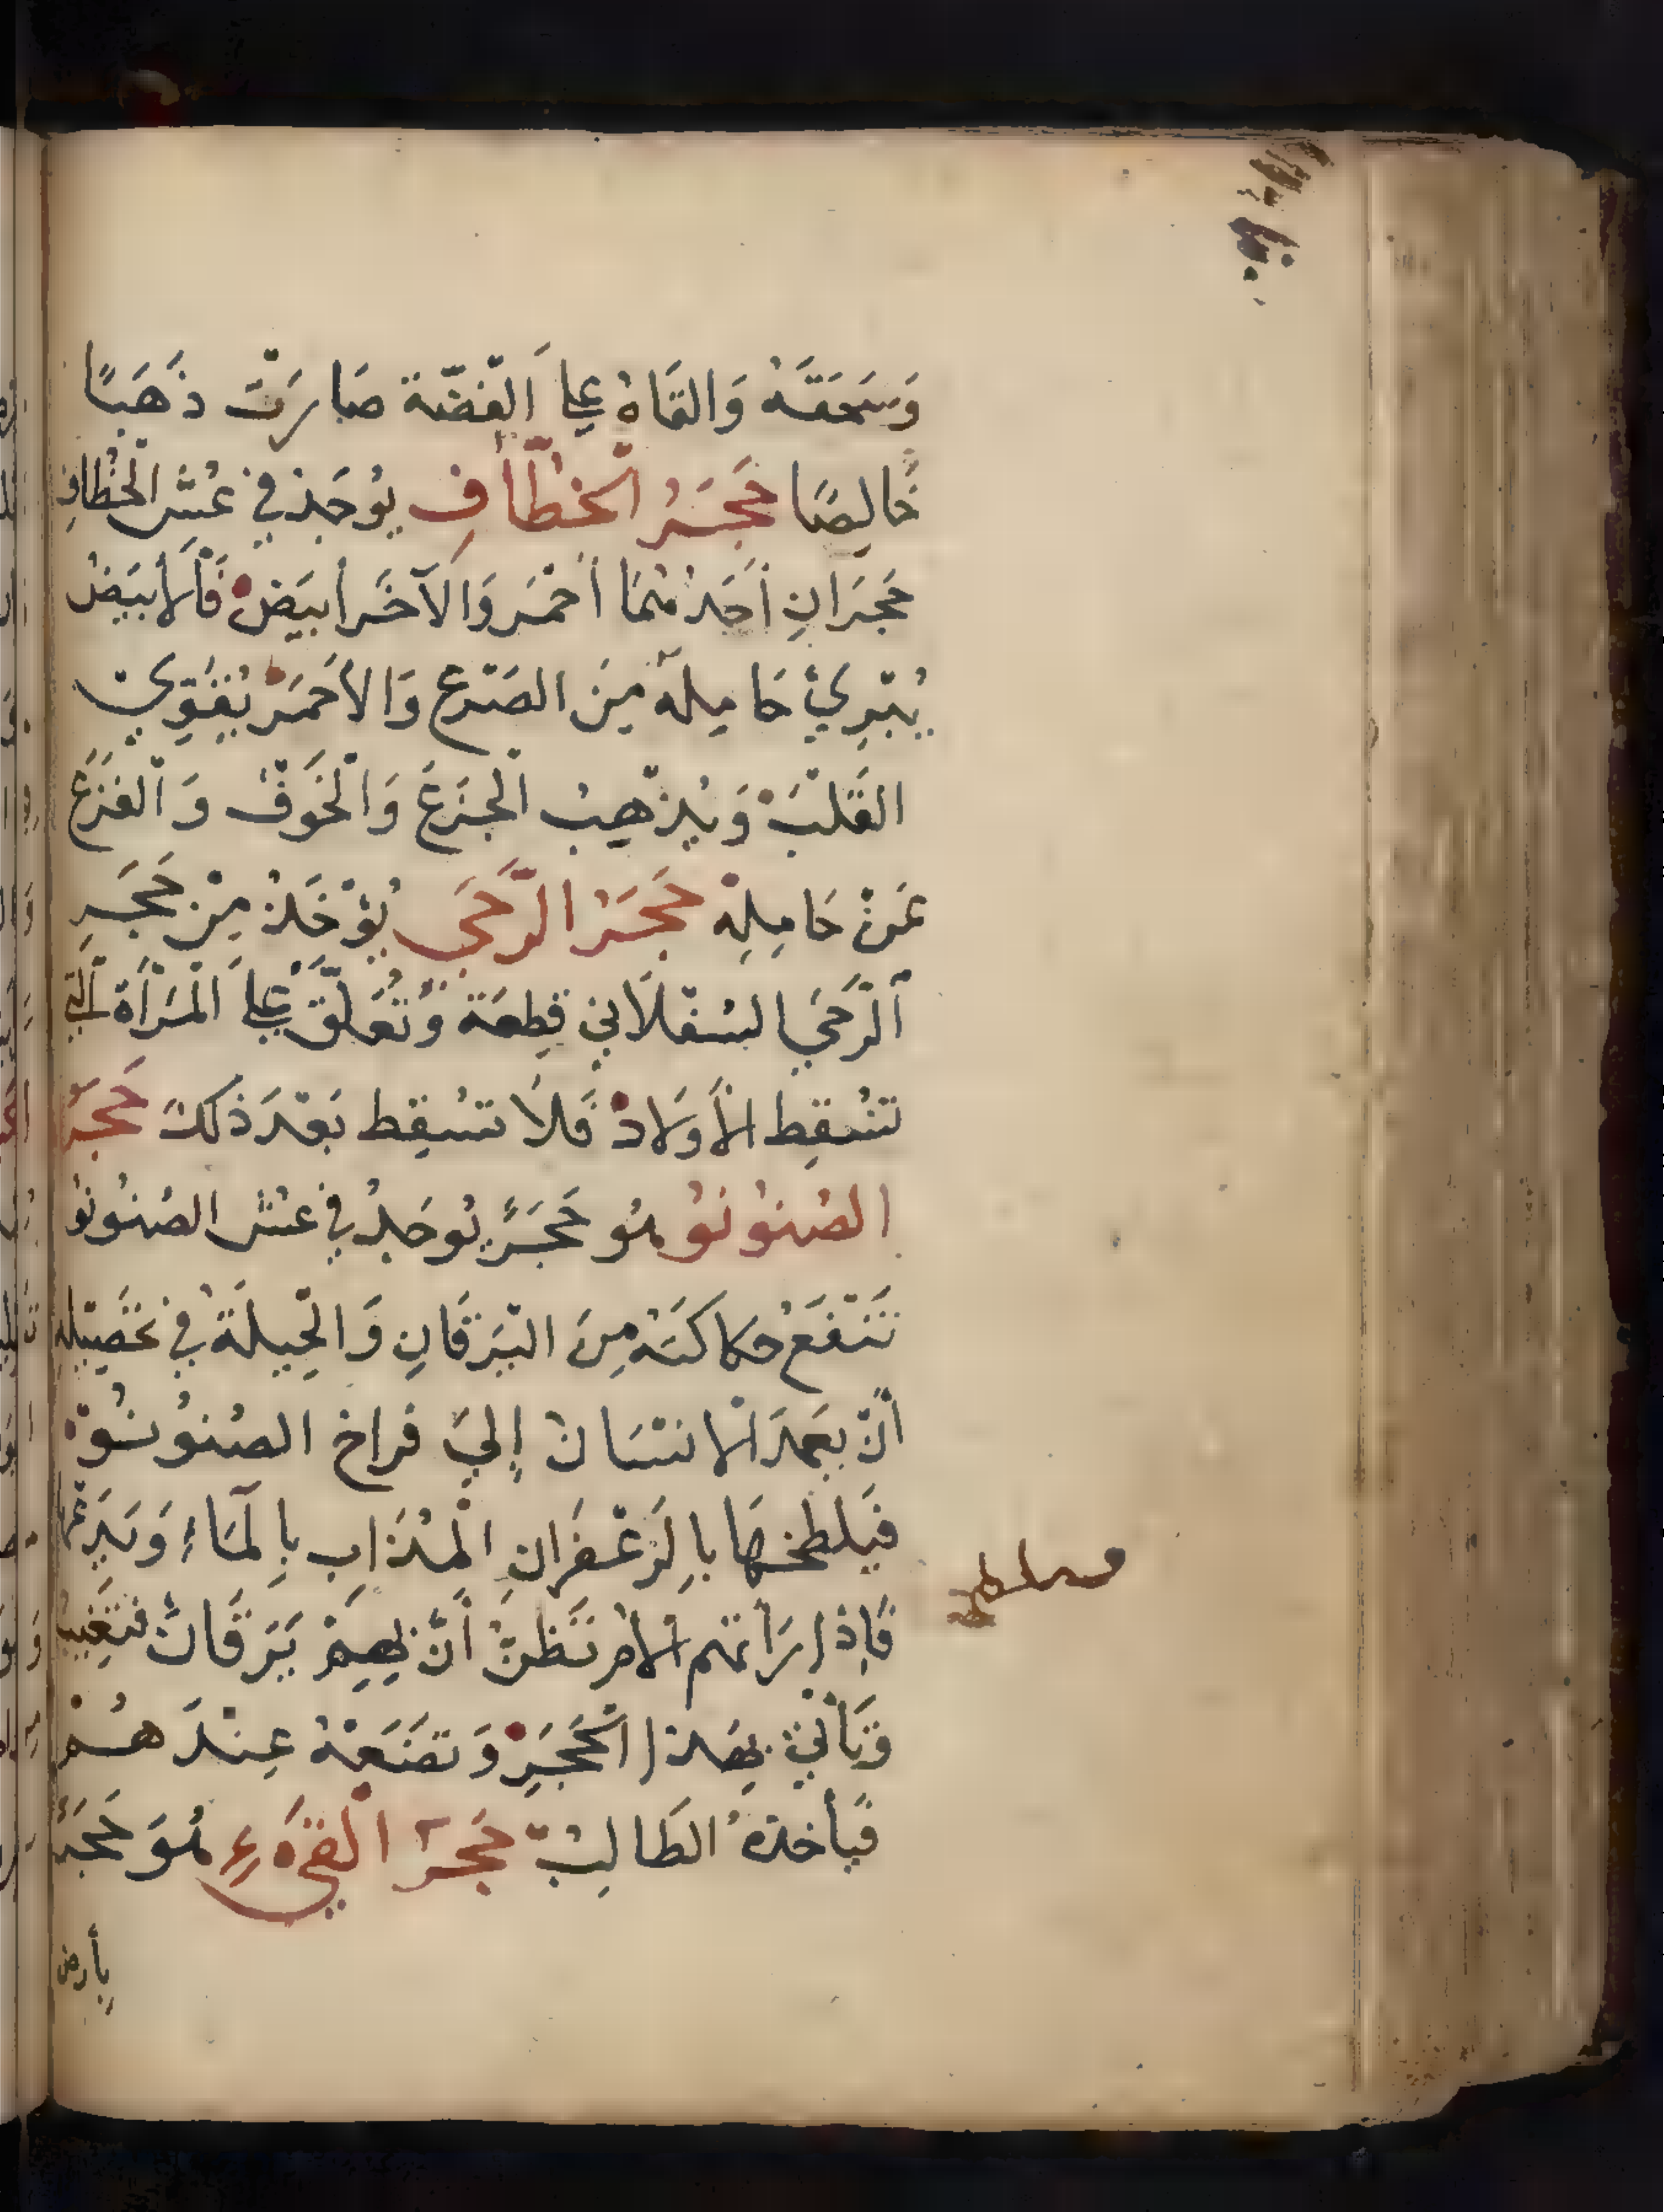 وَسَحَقَهُ وَالقَاهُ عَلَي الفِضّة صَارَتْ ذَهَبًا
خَالِصًا حَجَرُ الخُطَّافِ يُوجَد في عُشِّ الخُطافِ
حَجَرَانِ أحَدُهُمَا أحْمَر وَالآخَر أبيَضْ فَالأبيَضُ
يُبْرِئُ حَامِلهُ مِنَ الصَرْع وَالأحمَرْ يُقَوِّي
القَلبَ وَيُذهِبُ الجَزَعَ وَالْخَوفَ وَالْفَزَعَ
عَنْ حَامِلِهِ حَجَرُ الرَّحَي يُؤخَذُ مِنْ حَجَرِ
الرَّحَي السُفلَاني قِطعَة وَتُعَلّقُ عَلَي المَرْأة الّتي
تُسْقِط الأَولادْ فَلَا تسْقِط بَعْدَ ذَلكَ حَجَرُ
الصُنُونُو هُو حَجَرٌ يُوجَدُ في عُش الصُنُونُو
تَنفَعُ حكاكَتهُ مِنَ اليَرَقَانِ وَالحِيلَةُ في تحَصِيلِهِ
أنْ يَعمدَ الانسَانْ إليَ فراخ الصُنُونُو
فيَلطخهَا بِالزَعْفَرَانِ الْمُذَابِ بِالمَاءِ وَيَدَعُهَا
فَإذا رَأتهُم الأم تَظنُّ أنّ بِهِمْ يَرَقَانٌ فتَغِيبُ
وَتَأتي بِهَذا الحَجَرِ وَتضَعَهُ عِندَهُمْ
فيَأخذهُ الطَالِبْ حَجَرُ القَيءِ هُوَ حَجَرٌ
بأرض